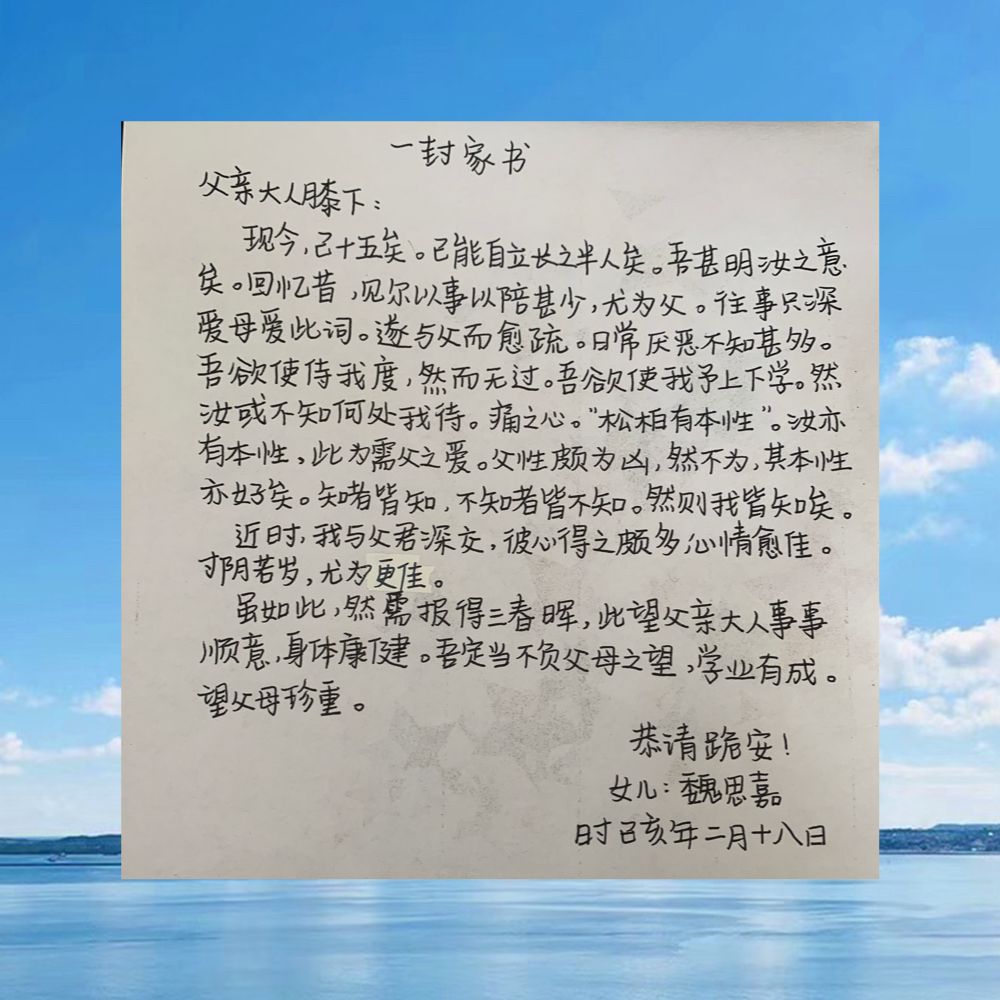 一封家书
父亲大人膝下：
现今，己十五矣。已能自立长之半人矣。吾甚明汝之意
矣。回忆昔，见尔以事以陪甚少，尤为父。往事只深
爱母爱此词。遂与父而愈疏。日常厌恶不知甚多。
吾欲使侍我度，然而无过。吾欲使我予上下学。然
汝或不知何处我待。痛之心。“松柏有本性”。汝亦
有本性，此为需父之爱。父性颇为凶，然不为，其本性
亦好矣。知者皆知，不知者皆不知。然则我皆知唉。
近时，我与父君深交，彼心得之颇多，心情愈佳。
阴若岁，尤为更佳。
虽如此，然需报得三春晖，此望父亲大人事事
顺意，身体康健。吾定当不负父母之望，学业有成。
望父母珍重。
恭请跪安！
女儿：魏思嘉
时己亥年二月十八日